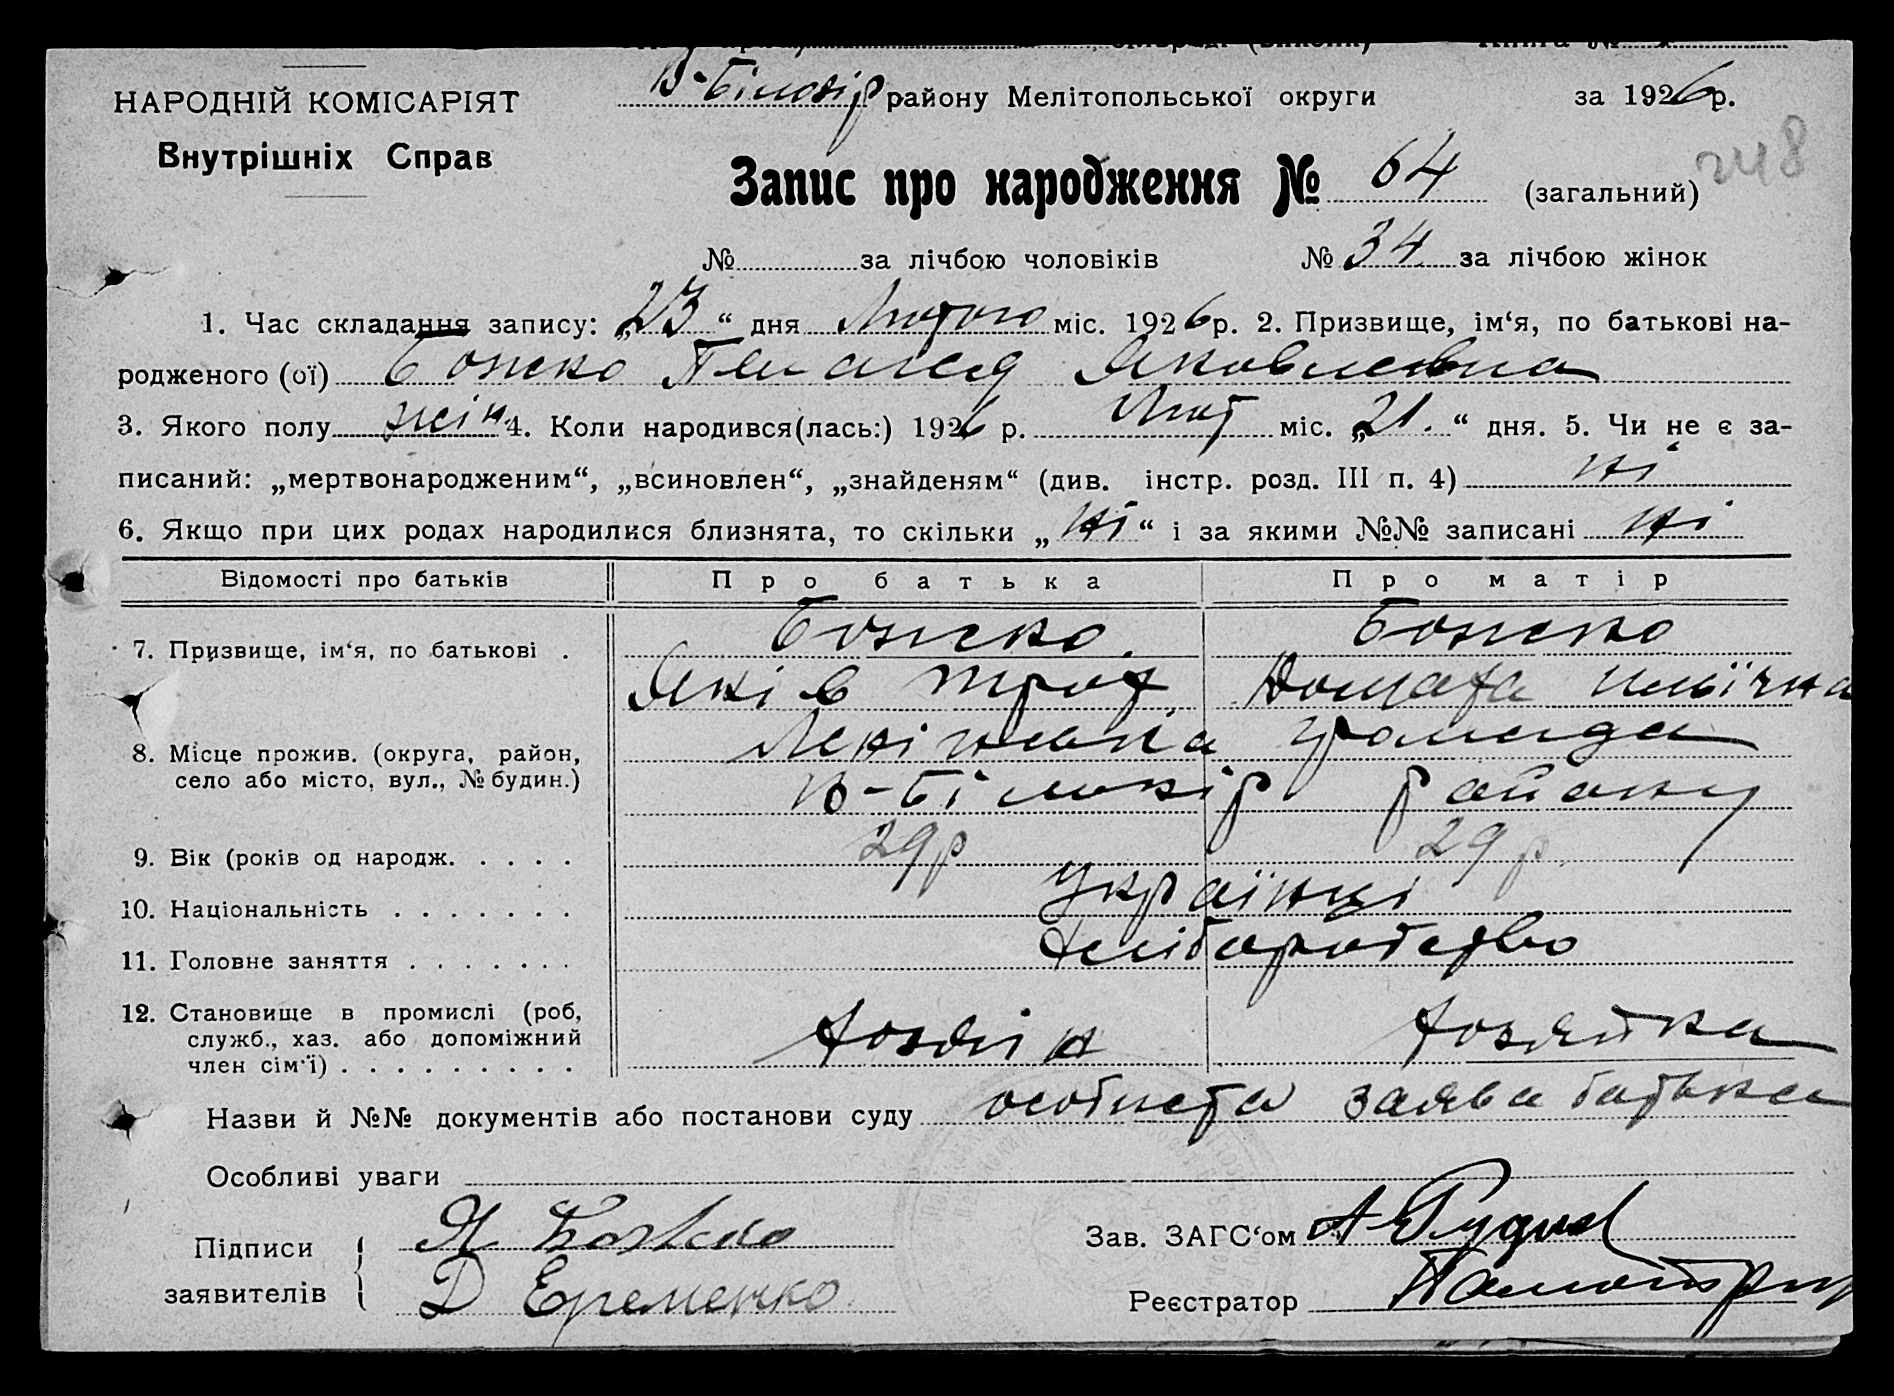 НАРОДНІЙ КОМІСАРІЯТ
Внутрішніх Справ
В-Білозір району Мелітопольської округи за 1926р.
248
Запис про народження № 64 (загальний)
№ за лічбою чоловіків № 34 за лічбою жінок
1. Час складання запису: „23“ дня Лютого міс. 1926р. 2. Призвище, ім‘я, по батькові на-
родженого (ої) Божко Яковлевна
3. Якого полу жін. 4. Коли народився(лась:) 1926 р. Лют міс. „21.“ дня. 5. Чи не є за-
писаний: „мертвонародженим“, „всиновлен“, „знайденям“ (див. інстр. розд. III п. 4) ні
6. Якщо при цих родах народилися близнята, то скільки „ні“ і за якими №№ записані ні
Відомості про батьків Про батька Про матір
7. Призвище, ім‘я, по батькові . Божко Божко
Яків Троф Домаха Ильїчна
8. Місце прожив. (округа, район, громада
село або місто, вул., № будин.) В-Білозір району
9. Вік (років од народж. . . . . 29р 29р.
10. Національність . . . . . . . Українці
11. Головне заняття . . . . . . . Хліборобство
12. Становище в промислі (роб,
служб., хаз. або допоміжний Хозяін Хозяйка
член сім‘ї) . . . . . . . . . .
Назви й №№ документів або постанови суду особиста заява батька
Особливі уваги
Підписи Я Божко Зав. ЗАГС‘ом
заявителів Д Еременко Реєстратор